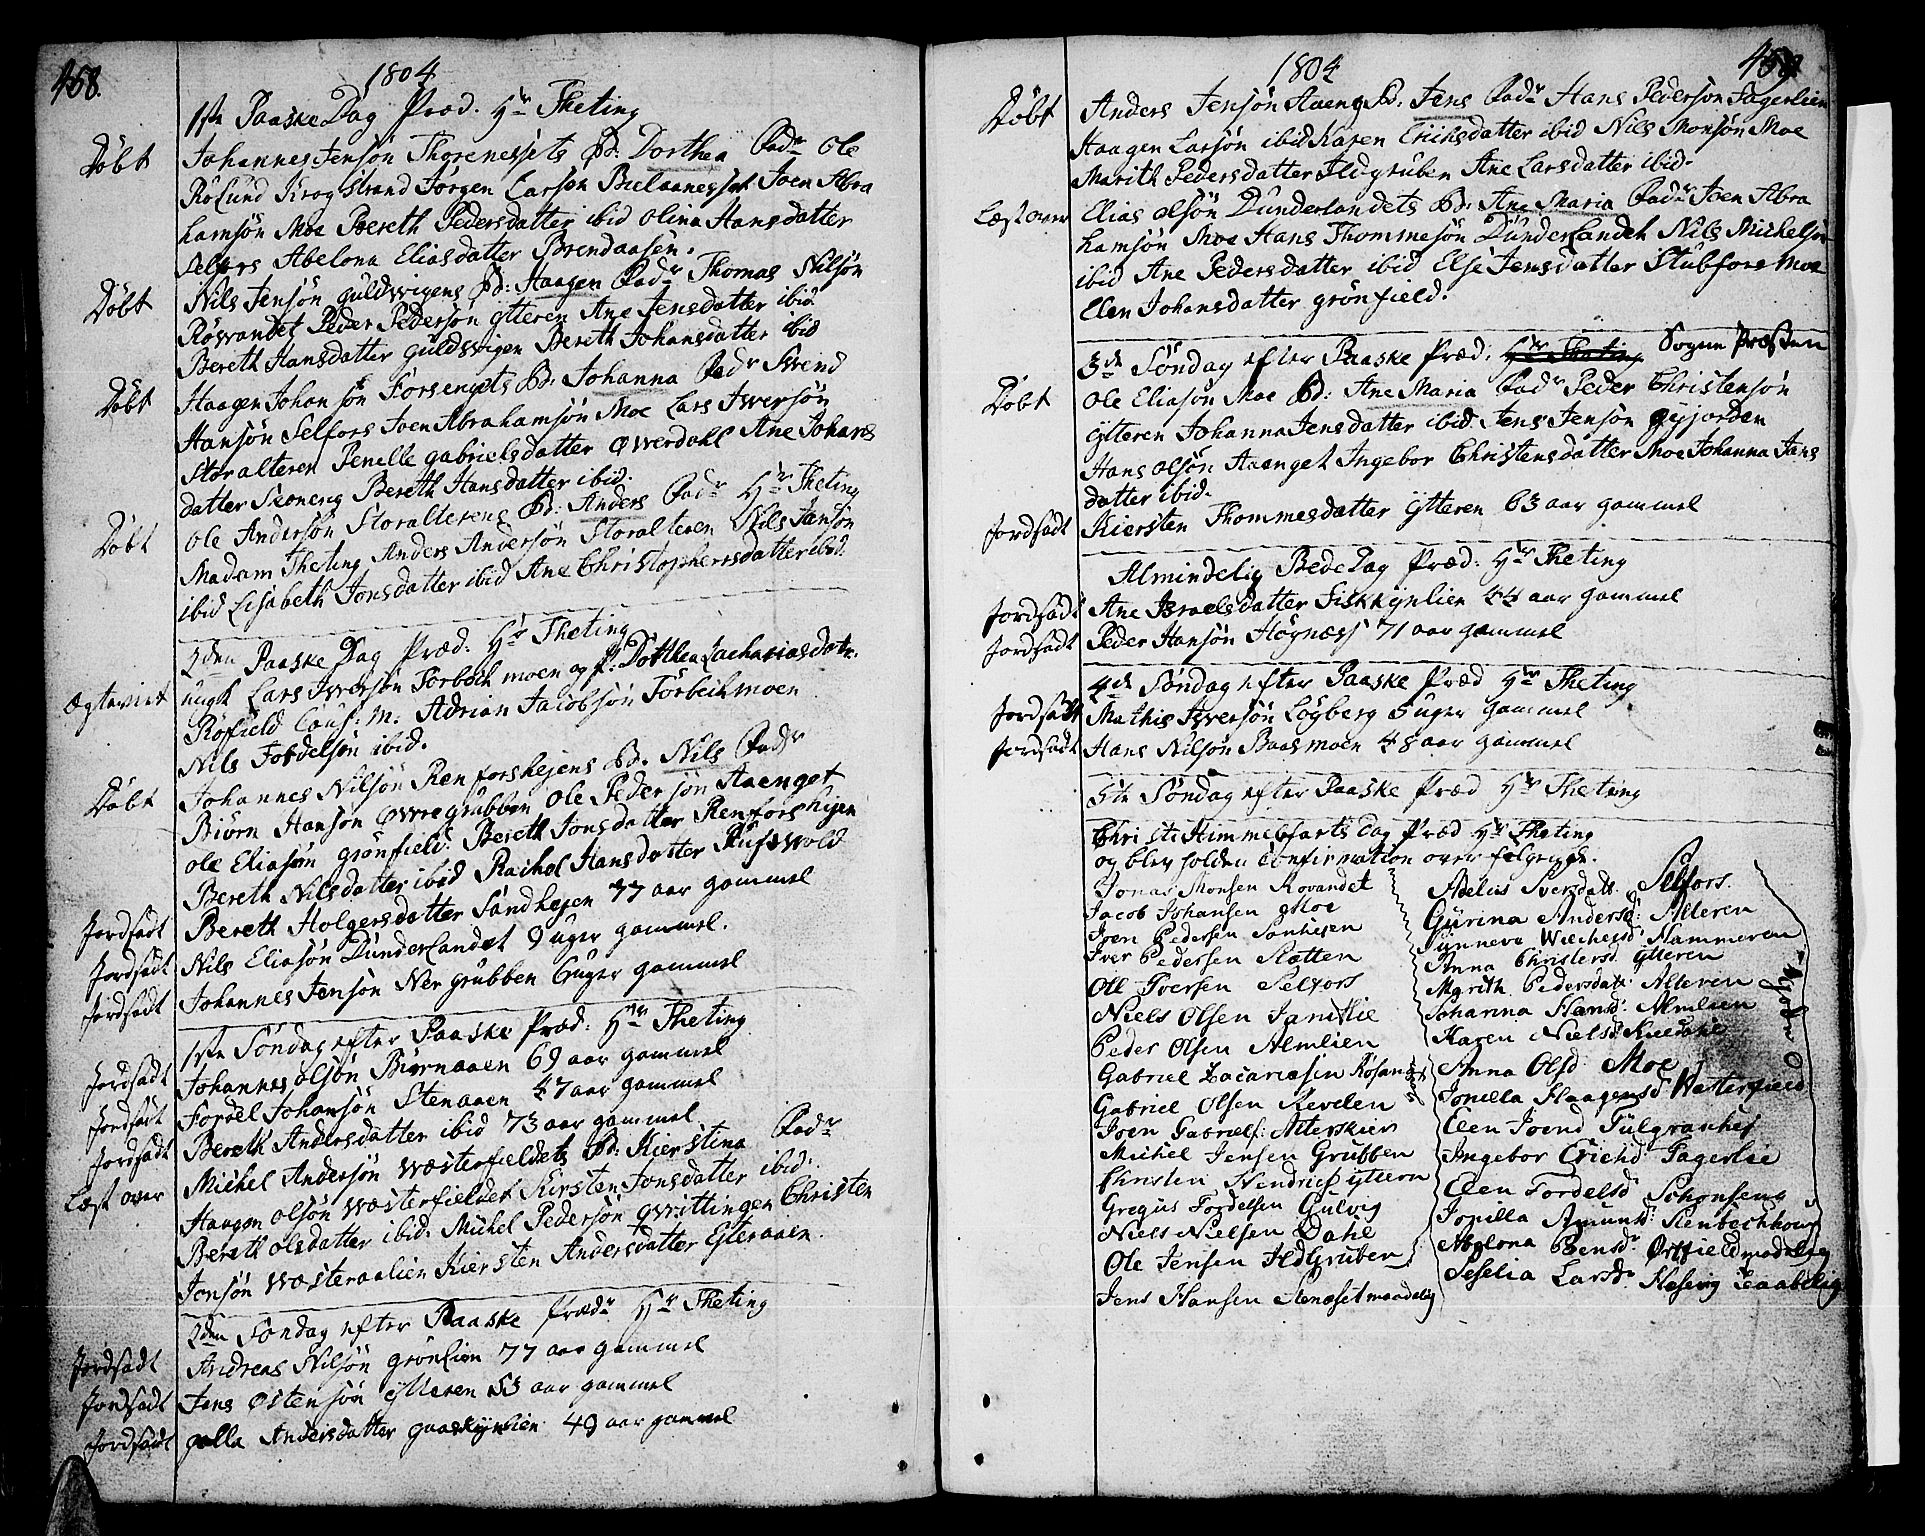 458.
1804
1ste Paaske Dag Præd. Hr Theting
Døbt Johannes Jensøn Thorenessets B: Dorthea Fadr Ole
Røslund Krogstrand Jørgen Larsen Bielaanesset Joen Abra
hamsøn Moe Bereth Pedersdatter ibid Olina Hansdatter
Selfors Abelona Eliasdatter Brendaasen.
Døbt Nils Jensøn Guldvigens B: Haagen Fadr Thomas Nilsøn
Røsvandet Peder Pedersøn Ytteren Ane Jensdatter ibid
Bereth Hansdatter Guldvigen Bereth Johansdatter ibid
Døbt Haagen Johansøn Forsengets B: Johanna Fadr Svend
Hansøn Selfors Joen Abrahamsøn Moe Lars Iversøn
Storalteren Penelle Gabrielsdatter Øverdahl Ane Johans
datter Skoneng Bereth Hansdatter ibid.
Døbt Ole Andersøn Storalterens B: Anders Fadr Hr Theting
Madam Theting Anders Andersøn Storalteren Nils Jansøn
ibid Lisabeth Jonsdatter ibid Ane Christophersdatter ibid.
2den Paaske Dag Præd: Hr Theting
Ægteviet ungk Lars Iversøn Forbech moen og P. Dorthea Zachariasdatr.
Røfield Cauf: m. Adrian Jacobsøn Forbechmoen
Nils Fordelsøn ibid.
Døbt Johannes Nilsøn Renforshejens B. Nils Fadr
Biørn Hansøn Øvregrubben Ole Pedersøn Aaenget
Ole Eliasøn Grønfield: Bereth Jonsdatter Renforshejen
Bereth Nilsdatter ibid Rachel Hansdatter Rufsvold
Jordfædt Bereth Holgersdatter Sandhejen 77 aar gammel
Jordfædt Nils Eliasøn Dunderlandet 9 uger gammel.
Jordfædt Johannes Jensøn Ner grubben 6 uger gammel
1ste Søndag efter Paaske Præd: Hr Theting
Jordfædt Johannes Olsøn Biørnaaen 69 aar gammel
Jordfædt Fordel Johansøn Stenaaen 47 aar gammel
Jordfædt Bereth Andersdatter ibid 73 aar gammel
Læst over Michel Andersøn Wæsterfieldets B: Kierstina Fadr
Haagen Olsøn Wæsterfieldet Kirsten Jonsdatter ibid:
Bereth Olsdatter ibid: Michel Pedersøn Qvittingen Christen
Jonsøn Wæsteraalien Kiersten Andersdatter Yteraaen.
2den Søndag efter Paaske Prædr Hr Theting
Jordfædt Andreas Nilsøn Grønlien 77 aar gammel
Jordfædt Jens Østensøn Ytteren 55 aar gammel
Jordfædt Golla Andersdatter Gaaskynlien 49 aar gammel
1804
Døbt Anders Jensøn Aaeng B. Jens Fadr Hans Pedersøn Fagerlien
Haagen Larsøn ibid Karen Erichsdatter ibid Nils Monsøn Moe
Marith Pedersdatter Ildgruben Ane Larsdatter ibid.
Læst over Elias Olsøn Dunderlandets B: Ane Maria Fadr Joen Abra
hamsøn Moe Hans Thommesøn Dunderlandet Nils Michelsøn
ibid Ane Pedersdatter ibid Else Jensdatter Stubfors Moe
Elen Johansdatter Grønfield.
3de Søndag efter Paaske Præd: Hr Theting Sogne Præsten
Døbt Ole Eliasøn Moe B: Ane Maria Fadr Peder Christensøn
Ytteren Johanna Jensdatter ibid Jens Jensøn Øyjorden
Hans Olsøn Aaenget Ingebor Christensdatter Moe Johanna Jans
datter ibid.
Jordfædt Kiersten Thommesdatter Ytteren 63 aar gammel
Almindelig Bede Dag Præd: Hr Theting
Jordfædt Ane Israelsdatter Fiskkynlien 44 aar gammel
Jordfædt Peder Hansøn Høgnæss 71 aar gammel
4de Søndag efter Paaske Præd Hr Theting
Jordfædt Mathis Iversøn Løgberg 5 uger gammel
Jordfædt Hans Nilsøn Baasmoen 48 aar gammel
5te Søndag efter Paaske Præd Hr Theting
Christi Himmelfarts Dag Præd Hr Theting
og blev holden Confirmation over følgende.
Jonas Monsen Røvandet
Jacob Johansen Moe
Joen Pedersen Sanhiesen
Iver Pedersen Slotten
Ole Iversen Selfors
Niels Olsen
Peder Olsen Almlien
Gabriel Zacariasen
Gabriel Olsen Revelen
Joen Gabriels: Alterskier
Michel Jensen Grubben
Christen Hendrichs Yttern
Gregus Fordelsen Gulvig
Niels Nielsen Dahl
Ole Jensen Ildgruben
Jens Hansen Stenæset maadelig
Adelus Sversdatr Selfors.
Gurina Andersd: Alteren
Sünneve Hammeren
Anna Christensd Ytteren
Marith Pedersdatr Alteren
Johanna Hansd: Almlien
Karen Nielsd
Anna Olsd Moe
Jonilla Haagensd Wasterfield
Elen Joensd Tulgranhei
Ingebor Erichd Fagerlie
Elen Fordelsd Schonseng
Jonilla Amunds: Stenbechhoug
Abelona Bensd. Ørtfield maadelig
Seselia Larsdr Høgseng